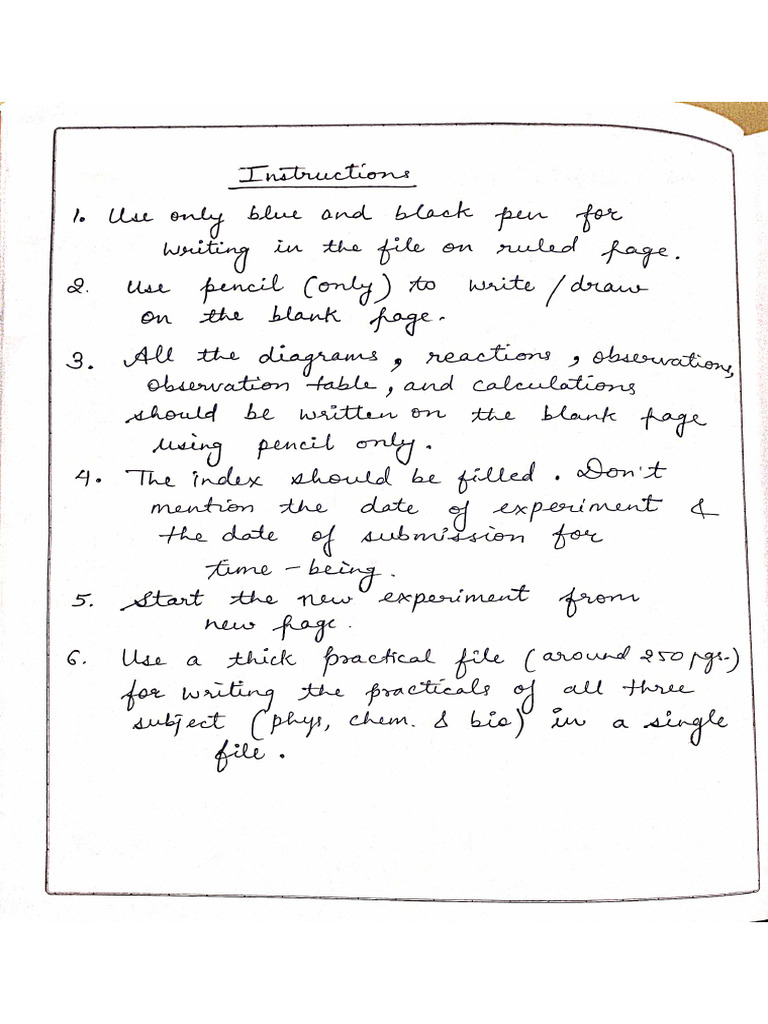 Instructions
1. Use only blue and black pen for
writing in the file on ruled page.
2. Use pencil (only) to write / draw
on the blank page.
3. All the diagrams, reactions, observations,
observation table, and calculations
should be written on the blank page
using pencil only.
4. The index should be filled. Don't
mention the date of experiment &
the date of submission for
time-being.
5. Start the new experiment from
new page.
6. Use a thick practical file (around 250 pgs.)
for writing the practicals of all three
subject (phys, chem. & bio) in a single
file.